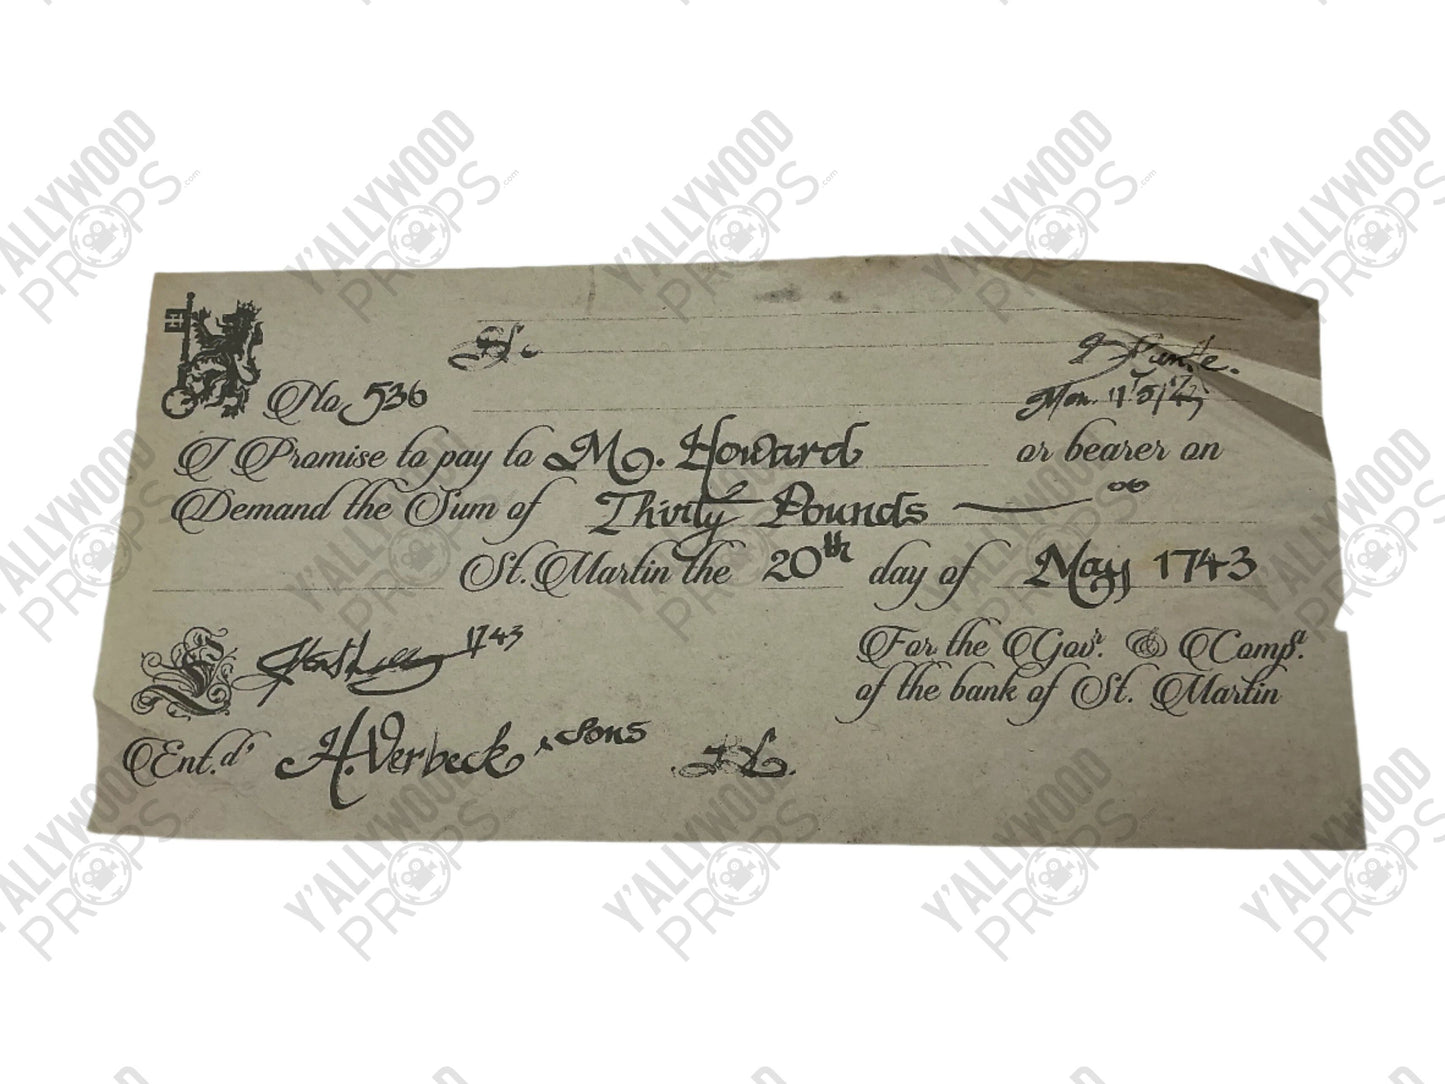 No 536
Mon.
I Promise to pay to M. Howard or bearer on
Demand the Sum of Thirty Pounds
St. Martin the 20th day of May 1743
1743
For the Govr. & Compa.
of the bank of St. Martin
Ent.d H. Verbeck & Sons
Y'ALLYWOOD PROPS.com